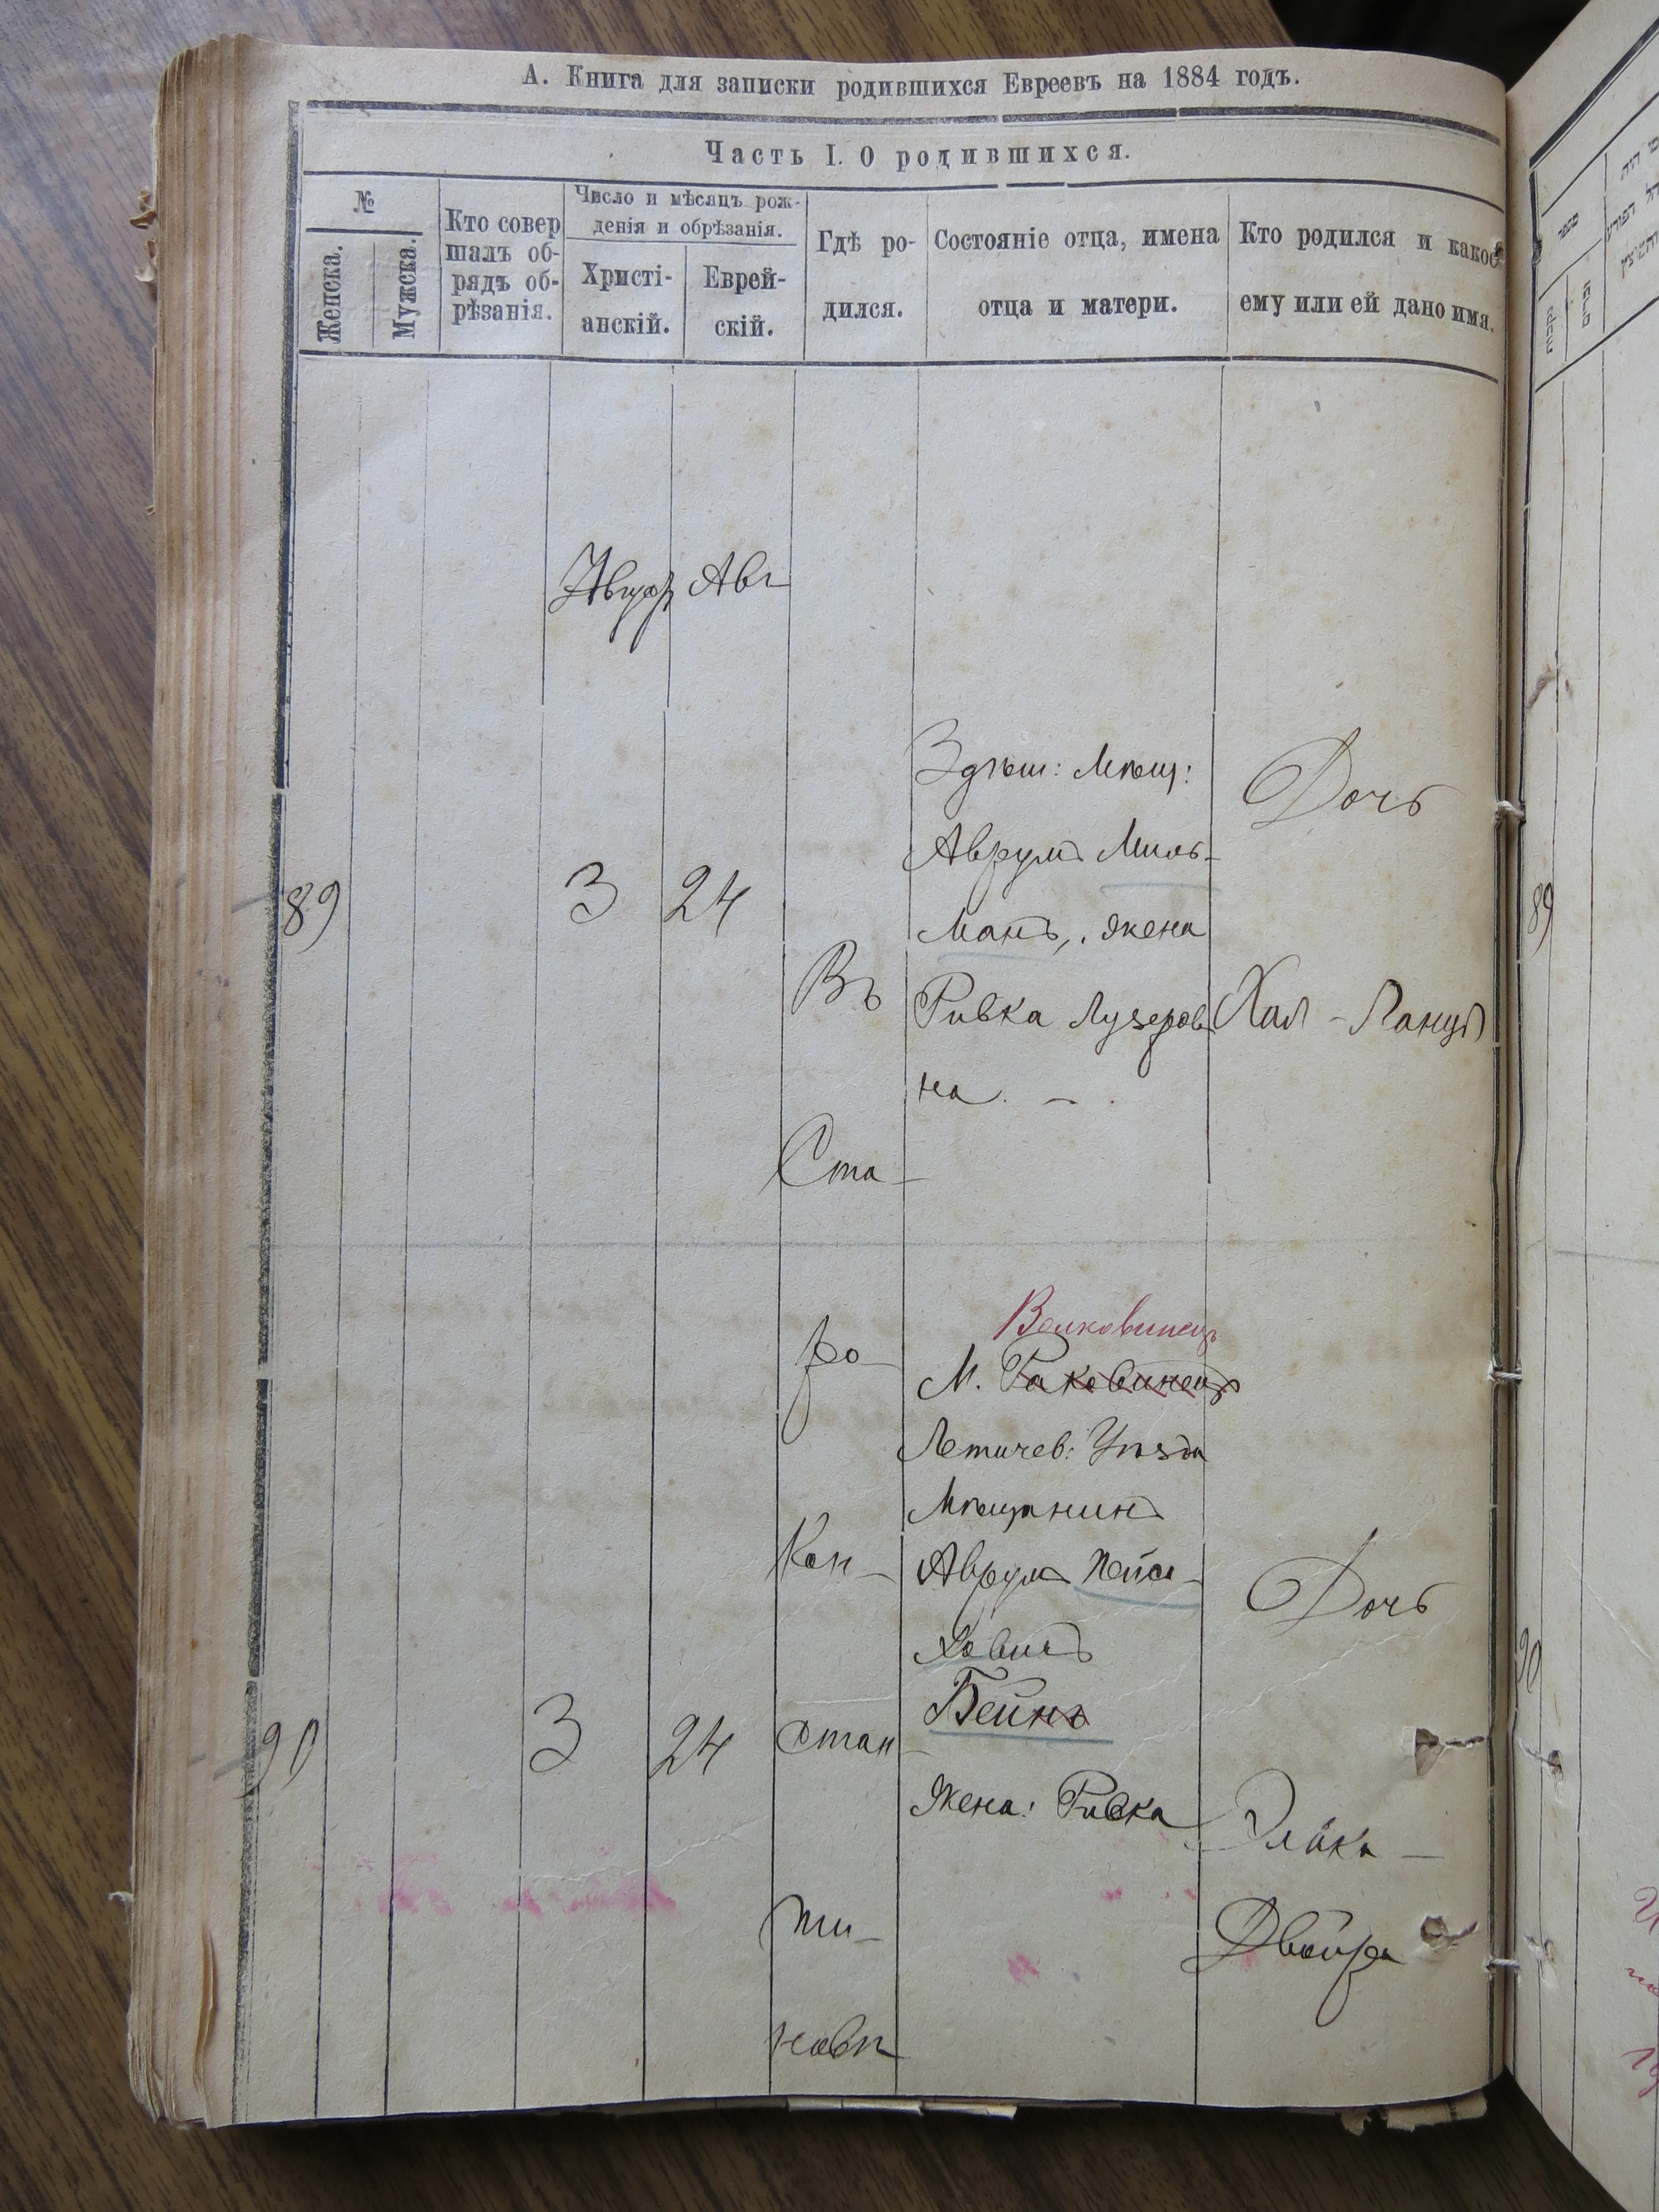 А. Книга для записки родившихся Евреевъ на 1884 годъ.
Часть I. О родившихся.
№
Женска.
Мужска.
Кто совер
шалъ об-
рядъ об-
рѣзанія.
Число и мѣсяцъ рож-
денія и обрѣзанія.
Христі-
анскій.
Еврей-
скій.
Гдѣ ро-
дился.
Состояніе отца, имена
отца и матери.
Кто родился и какое
ему или ей дано имя.
Авг
89
3
24
Здѣш: Мѣщ:
Аврумъ Миль-
манъ, жена
Ривка Лузеров
на. —
Дочь
Хая - Ланця
Въ
Ста-
ро
Кон-
стан-
ти-
новѣ
90
3
24
Волковинецъ
М. Раковинецъ
Летичев: Уѣзда
Мѣщанинъ
Аврумъ Пейса-
ховичъ
Бейнъ
Жена: Ривка
Дочь
Элька —
Двойра
89
90